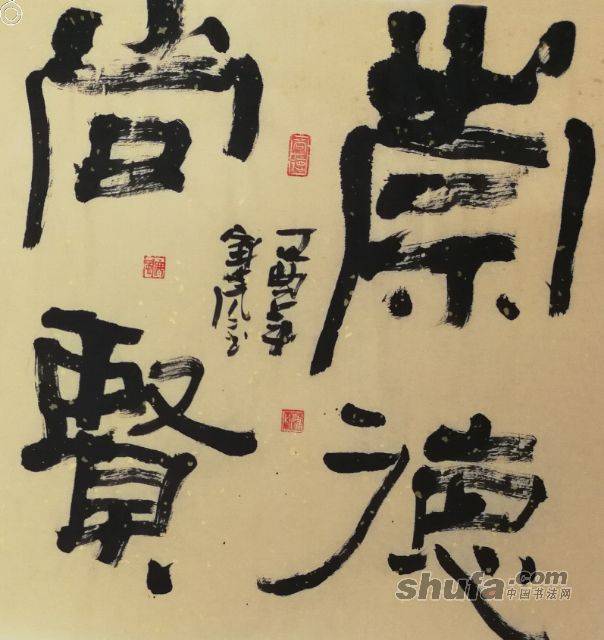 崇德
尚賢
丁酉年
shufa.com
中国书法网